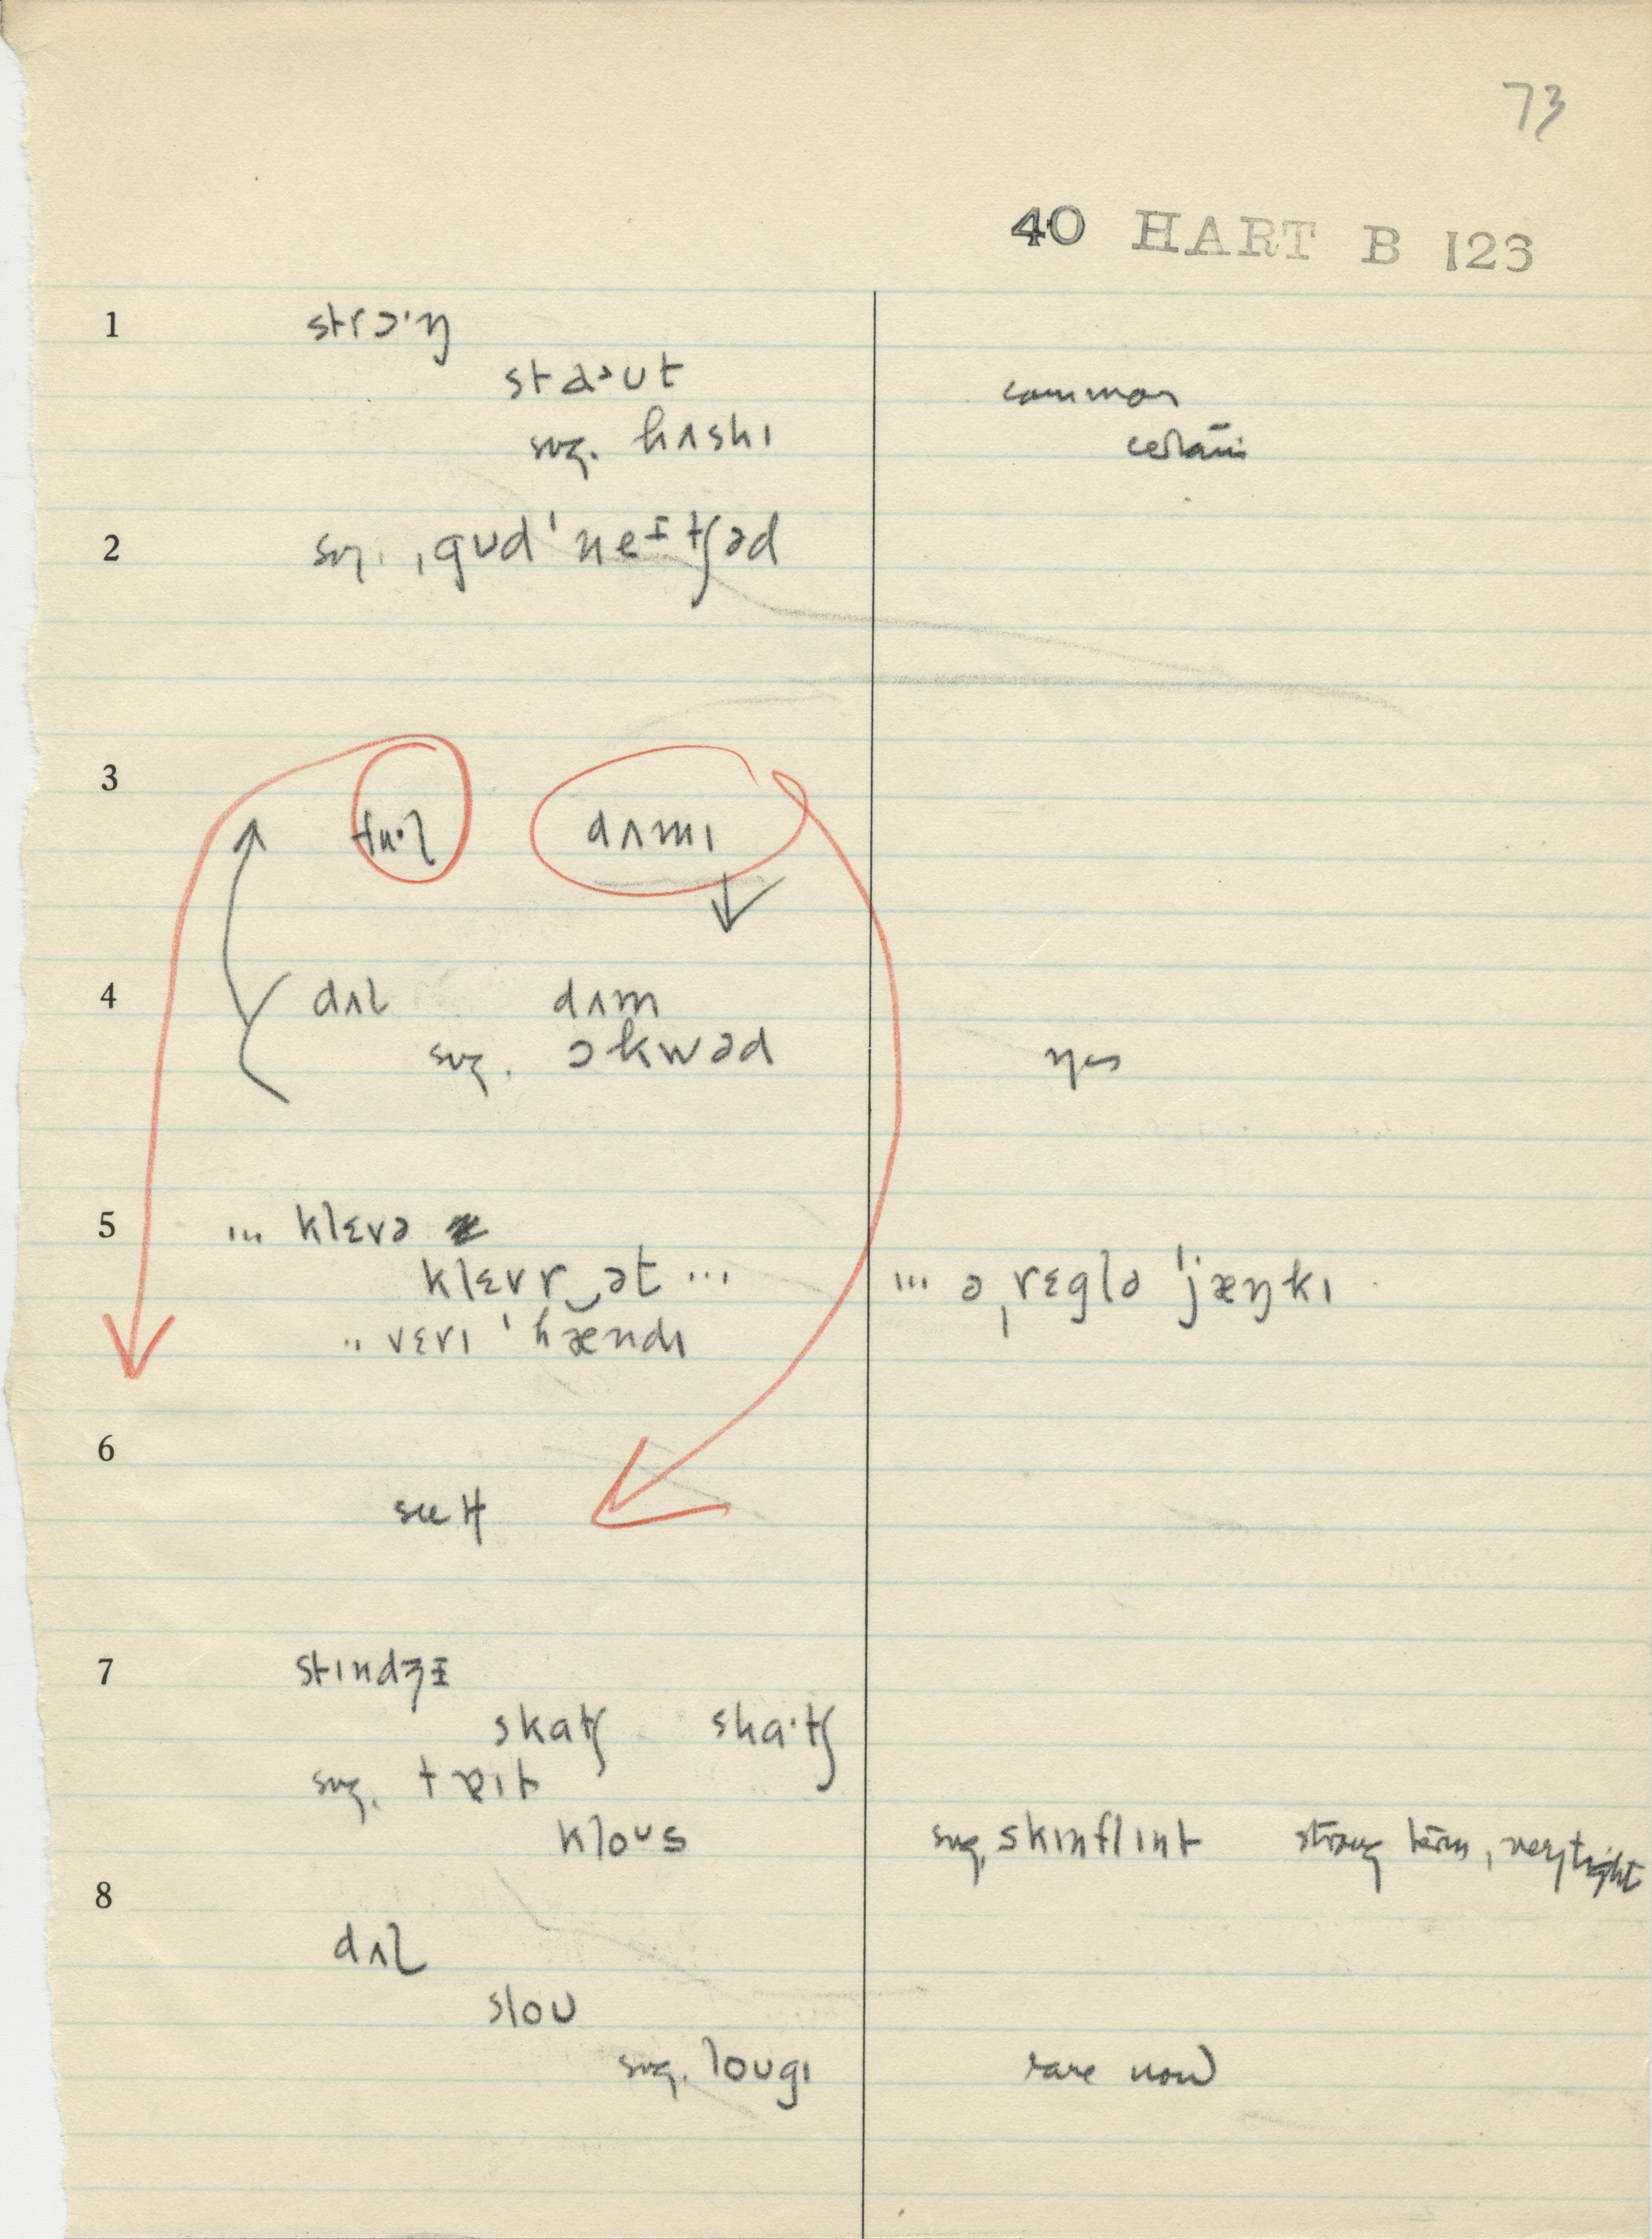 73
40 HART B 123
1 strɔ·ŋ
staˑut common
sug. hʌskɪ certain
2 sug. ˌgʊdˈneɪtʃəd
3 fu·l dʌmɪ
4 dʌl dʌm
sug. ɔkwəd yes
5 ... klɛvə
klɛvr‿ət ... ... əˌrɛglə ˈjæŋkɪ
.. vɛrɪ ˈhændɪ
6
see 4
7 stɪndʒɪ
skatʃ ska·tʃ
sug. tɐɪt
kloʊs sug. skɪnflɪnt strong term, very tight
8
dʌl
sloʊ
sug. loʊgɪ rare now